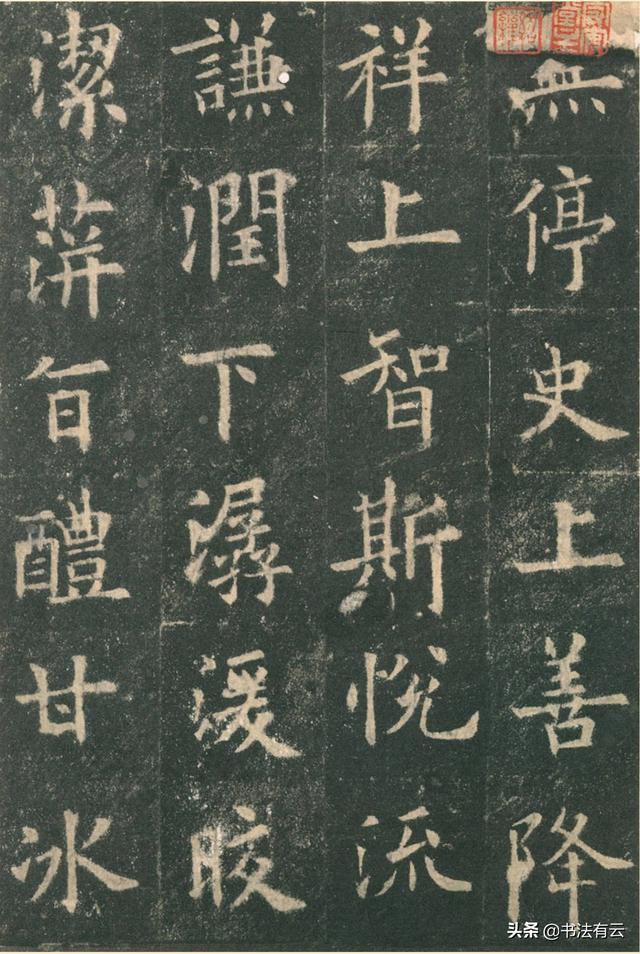 無停史上善降
祥上智斯悅流
謙潤下潺湲晈
潔蓱旨醴甘冰
头条 @书法有云